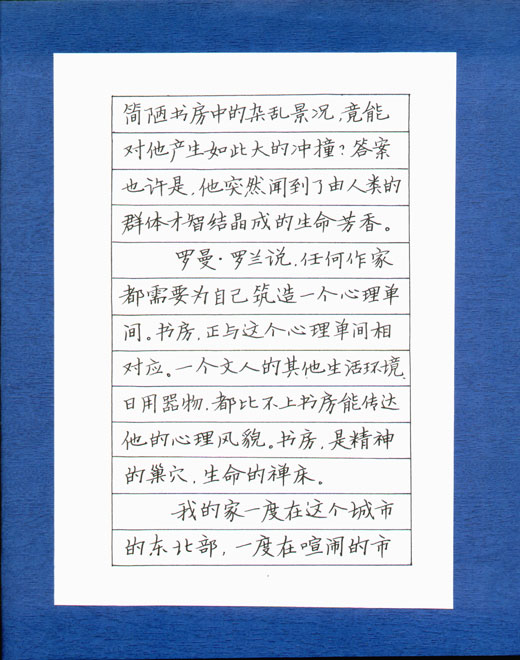 简陋书房中的杂乱景况，竟能
对他产生如此大的冲撞？答案
也许是，他突然闻到了由人类的
群体才智结晶成的生命芳香。
罗曼·罗兰说，任何作家
都需要为自己筑造一个心理单
间。书房，正与这个心理单间相
对应。一个文人的其他生活环境、
日用器物，都比不上书房能传达
他的心理风貌。书房，是精神
的巢穴，生命的禅床。
我的家一度在这个城市
的东北部，一度在喧闹的市